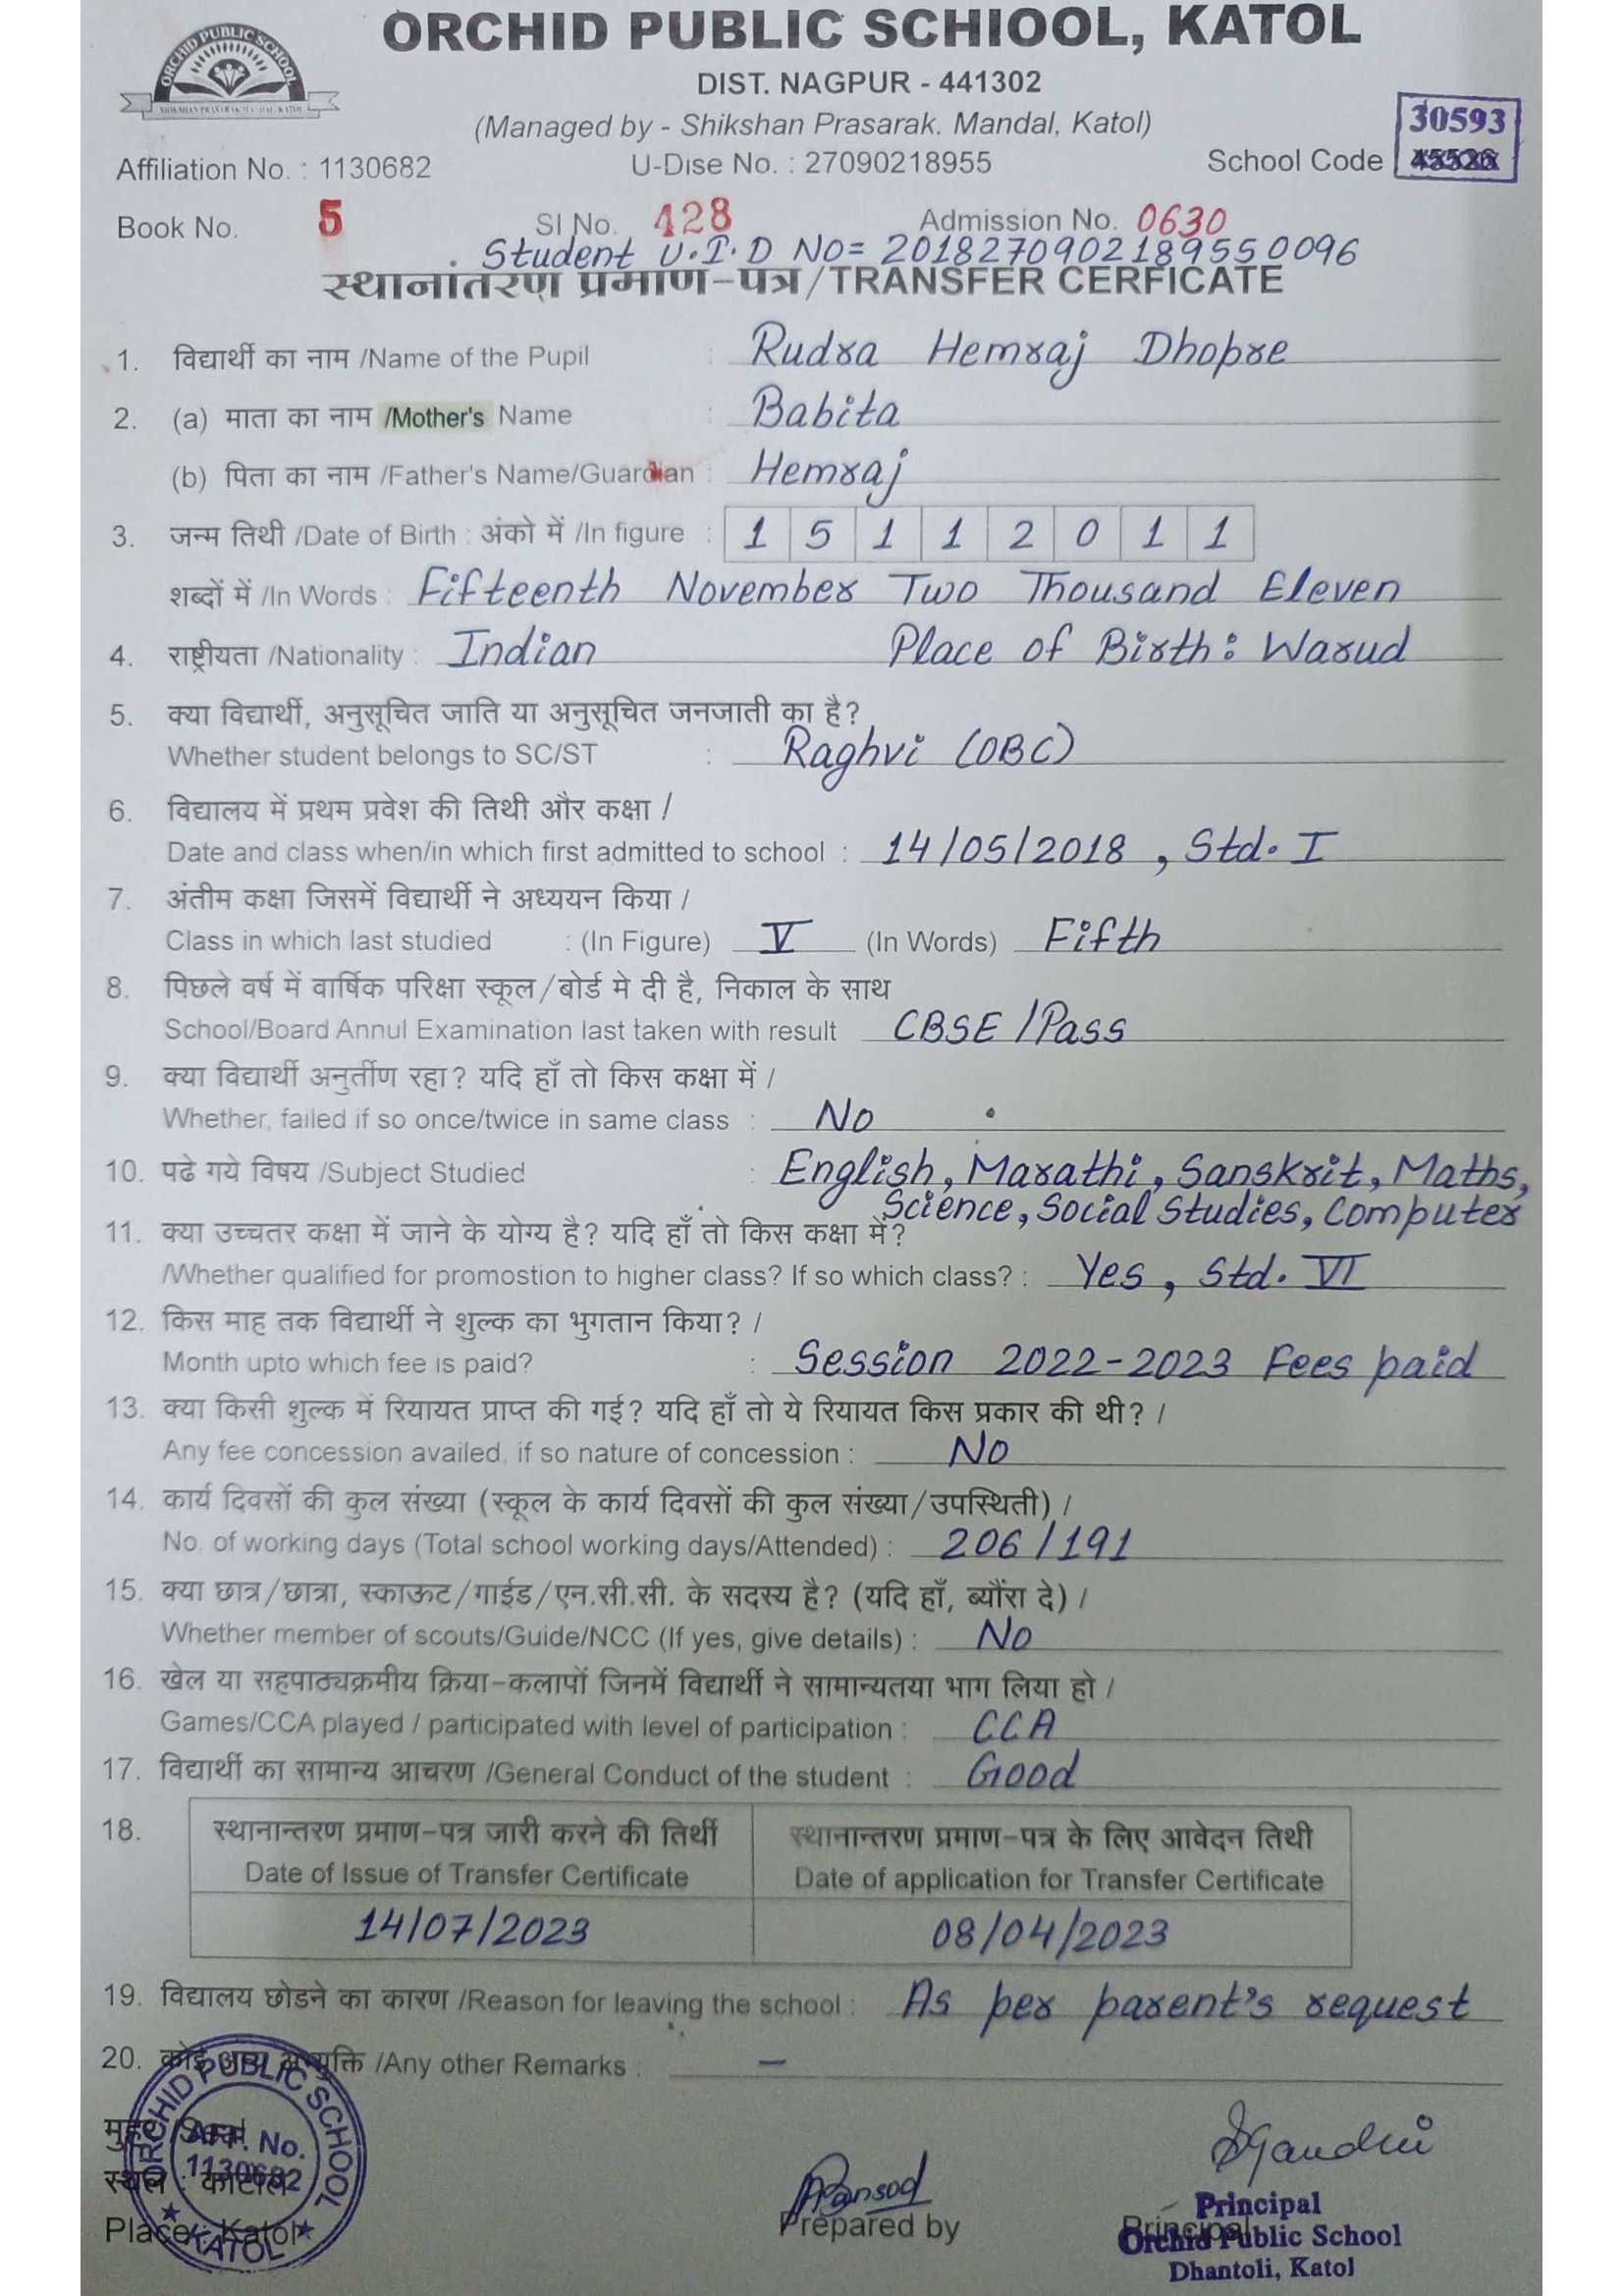 ORCHID PUBLIC SCHIOOL, KATOL
ORCHID PUBLIC SCHOOL
DIST. NAGPUR - 441302
(Managed by - Shikshan Prasarak. Mandal, Katol)
30593
Affiliation No. : 1130682 U-Dise No. : 27090218955 School Code 45526
Book No. 5 Sl No. 428 Admission No. 0630
Student U.I.D NO= 2018270902189550096
स्थानांतरण प्रमाण-पत्र/TRANSFER CERFICATE
1. विद्यार्थी का नाम /Name of the Pupil : Rudra Hemraj Dhopre
2. (a) माता का नाम /Mother's Name : Babita
(b) पिता का नाम /Father's Name/Guardian : Hemraj
3. जन्म तिथी /Date of Birth : अंको में /In figure : 1 5 1 1 2 0 1 1
शब्दों में /In Words : Fifteenth November Two Thousand Eleven
4. राष्ट्रीयता /Nationality : Indian Place of Birth: Warud
5. क्या विद्यार्थी, अनुसूचित जाति या अनुसूचित जनजाती का है?
Whether student belongs to SC/ST : Raghvi (OBC)
6. विद्यालय में प्रथम प्रवेश की तिथी और कक्षा /
Date and class when/in which first admitted to school : 14/05/2018, Std. I
7. अंतीम कक्षा जिसमें विद्यार्थी ने अध्ययन किया /
Class in which last studied : (In Figure) V (In Words) Fifth
8. पिछले वर्ष में वार्षिक परिक्षा स्कूल/बोर्ड मे दी है, निकाल के साथ
School/Board Annul Examination last taken with result CBSE /Pass
9. क्या विद्यार्थी अनुर्तीण रहा? यदि हाँ तो किस कक्षा में /
Whether, failed if so once/twice in same class : No
10. पढे गये विषय /Subject Studied : English, Marathi, Sanskrit, Maths,
Science, Social Studies, Computer
11. क्या उच्चतर कक्षा में जाने के योग्य है? यदि हाँ तो किस कक्षा में?
/Whether qualified for promostion to higher class? If so which class? : Yes, Std. VI
12. किस माह तक विद्यार्थी ने शुल्क का भुगतान किया? /
Month upto which fee is paid? : Session 2022-2023 Fees paid
13. क्या किसी शुल्क में रियायत प्राप्त की गई? यदि हाँ तो ये रियायत किस प्रकार की थी? /
Any fee concession availed, if so nature of concession : No
14. कार्य दिवसों की कुल संख्या (स्कूल के कार्य दिवसों की कुल संख्या/उपस्थिती) /
No. of working days (Total school working days/Attended) : 206/191
15. क्या छात्र/छात्रा, स्काऊट/गाईड/एन.सी.सी. के सदस्य है? (यदि हाँ, ब्यौंरा दे) /
Whether member of scouts/Guide/NCC (If yes, give details) : No
16. खेल या सहपाठ्यक्रमीय क्रिया-कलापों जिनमें विद्यार्थी ने सामान्यतया भाग लिया हो /
Games/CCA played / participated with level of participation : CCA
17. विद्यार्थी का सामान्य आचरण /General Conduct of the student : Good
18. स्थानान्तरण प्रमाण-पत्र जारी करने की तिर्थी स्थानान्तरण प्रमाण-पत्र के लिए आवेदन तिथी
Date of Issue of Transfer Certificate Date of application for Transfer Certificate
14/07/2023 08/04/2023
19. विद्यालय छोडने का कारण /Reason for leaving the school : As per parent's request
20. कोई अन्य अभ्युक्ति /Any other Remarks : –
मुहर /Seal
स्थल : काटोल
Place : Katol
ORCHID PUBLIC SCHOOL
AFF. No.
1130682
KATOL
Prepared by
Principal
Principal
Orchid Public School
Dhantoli, Katol